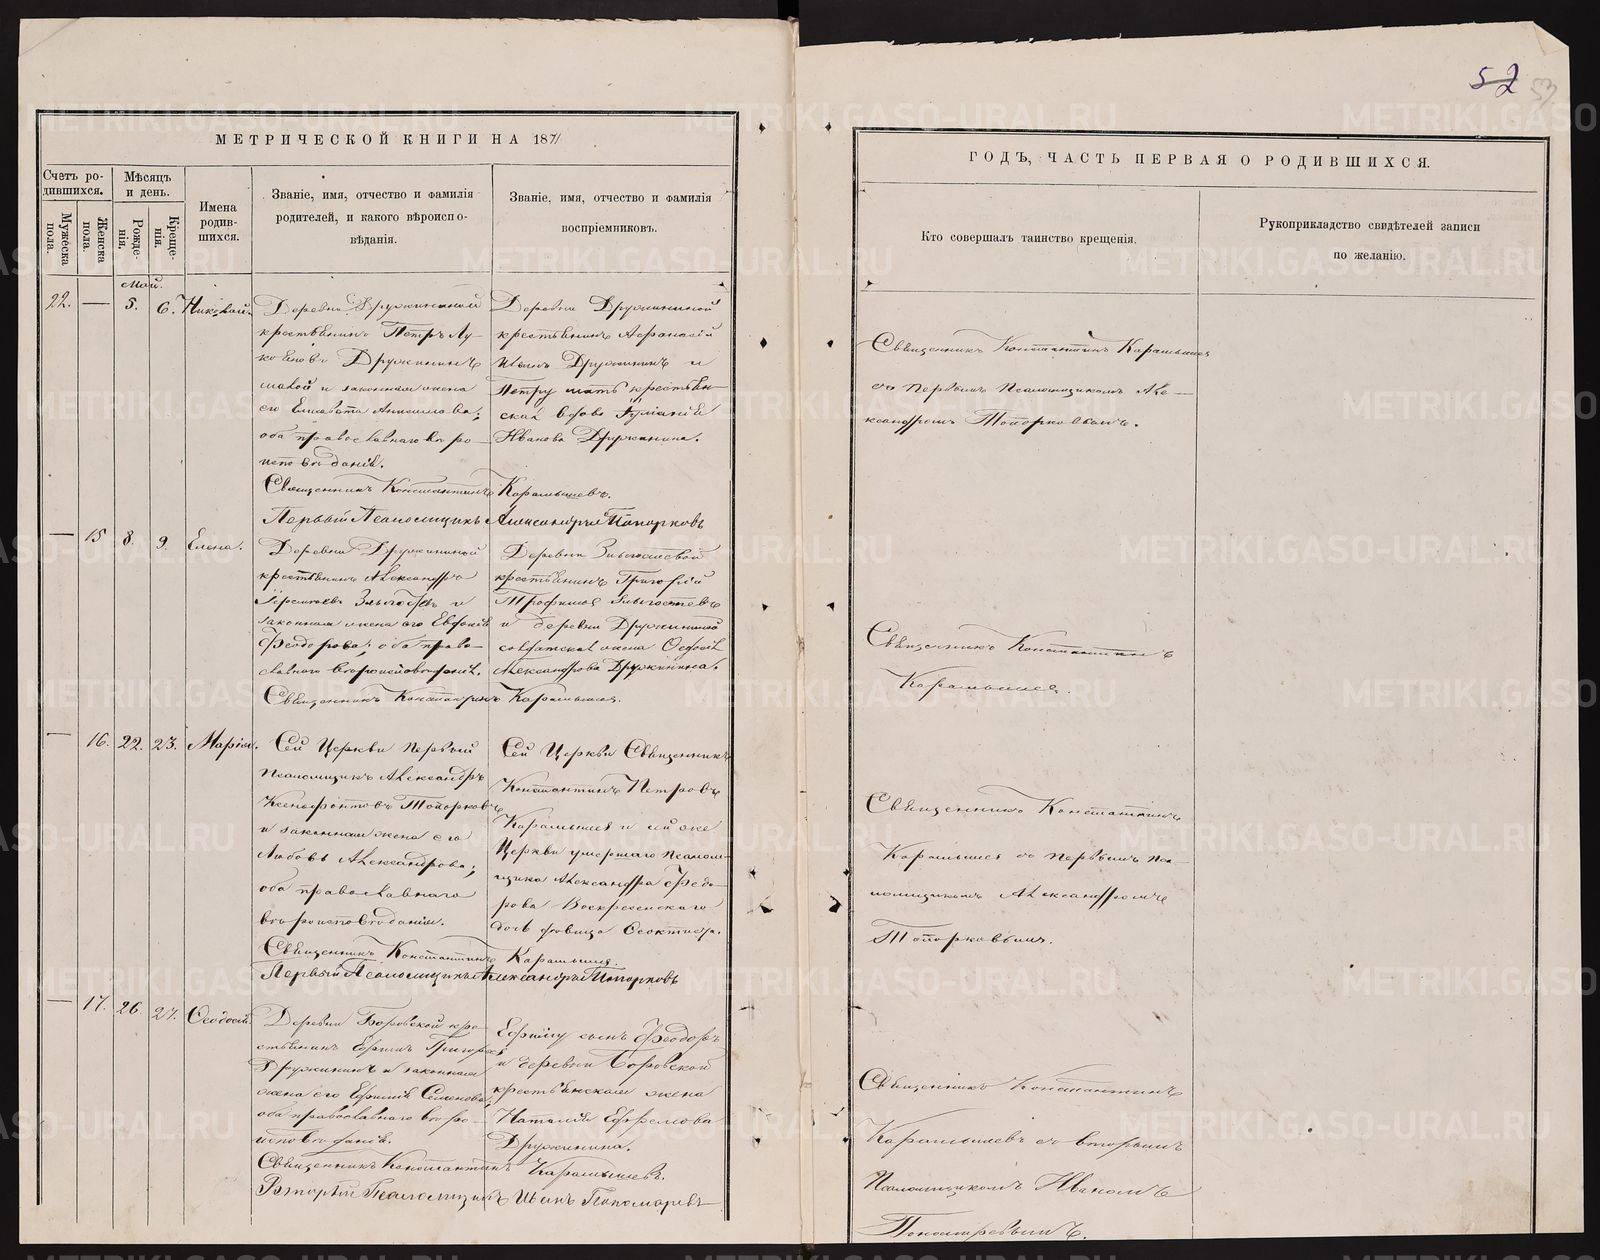 52
53
МЕТРИЧЕСКОЙ КНИГИ НА 187
ГОДЪ, ЧАСТЬ ПЕРВАЯ О РОДИВШИХСЯ.
Счетъ ро-
дившихся.
Мужеска
пола.
Женска
пола.
Мѣсяцъ
и день.
Рожде-
нія.
Креще-
нія.
Имена
родив-
шихся.
Званіе, имя, отчество и фамилія
родителей, и какого вѣроиспо-
вѣданія.
Званіе, имя, отчество и фамилія
воспріемниковъ.
Кто совершалъ таинство крещенія.
Рукоприкладство свидѣтелей записи
по желанію.
Май.
22. — 5. 6. Николай.
Деревни Дружининой
крестьянинъ Петръ Лу-
Дружининъ
и законная жена
его Елисавета
оба православнаго вѣро-
исповѣданія.
Деревни Дружининой
крестьянинъ Афанасій
Дружининъ и
Петру мать крестьян-
ская вдова
Иванова Дружинина.
Священникъ Константинъ Карамышевъ.
Первый Псаломщикъ Александръ Топорковъ
Священникъ Константинъ Карамышев
съ первымъ псаломщикомъ Але-
ксандромъ Топорковымъ.
— 15 8. 9. Елена.
Деревни Дружининой
крестьянинъ Александръ
и
законная жена его Евфимія
Феодорова; оба право-
славнаго вѣроисповѣданія.
Деревни
крестьянинъ Григорій
и деревни Дружининой
солдатская жена
Александрова Дружинина.
Священникъ Константинъ Карамышев.
Священникъ Константинъ
Карамышев.
— 16. 22. 23. Марія.
Сей Церкви первый
псаломщикъ Александръ
Ксенофонтовъ Топорковъ
и законная жена его
Любовь Александрова;
оба православнаго
вѣроисповѣданія.
Сей Церкви Священникъ
Константинъ Петровъ
Карамышев и сей же
Церкви умершаго псалом-
щика Александра Федо-
рова Воскресенскаго
дочь дѣвица
Священникъ Константинъ Карамышев.
Первый Псаломщикъ Александръ Топорковъ
Священникъ Константинъ
Карамышев съ первымъ пса-
ломщикомъ Александромъ
Топорковымъ.
— 17. 26. 27. Феодосій
Деревни Боровской кре-
стьянинъ Ефимъ Григорьев
Дружининъ и законная
жена его Ефимія Семенова;
оба православнаго вѣро-
исповѣданія.
Ефиму сынъ Феодоръ
и деревни Боровской
крестьянская жена
Наталія Ефремова
Дружинина.
Священникъ Константинъ Карамышевъ.
Вторый Псаломщикъ Иванъ Пономаревъ
Священникъ Константинъ
Карамышевъ съ вторымъ
Псаломщикомъ Иваномъ
Пономаревымъ.
METRIKI.GASO-URAL.RU